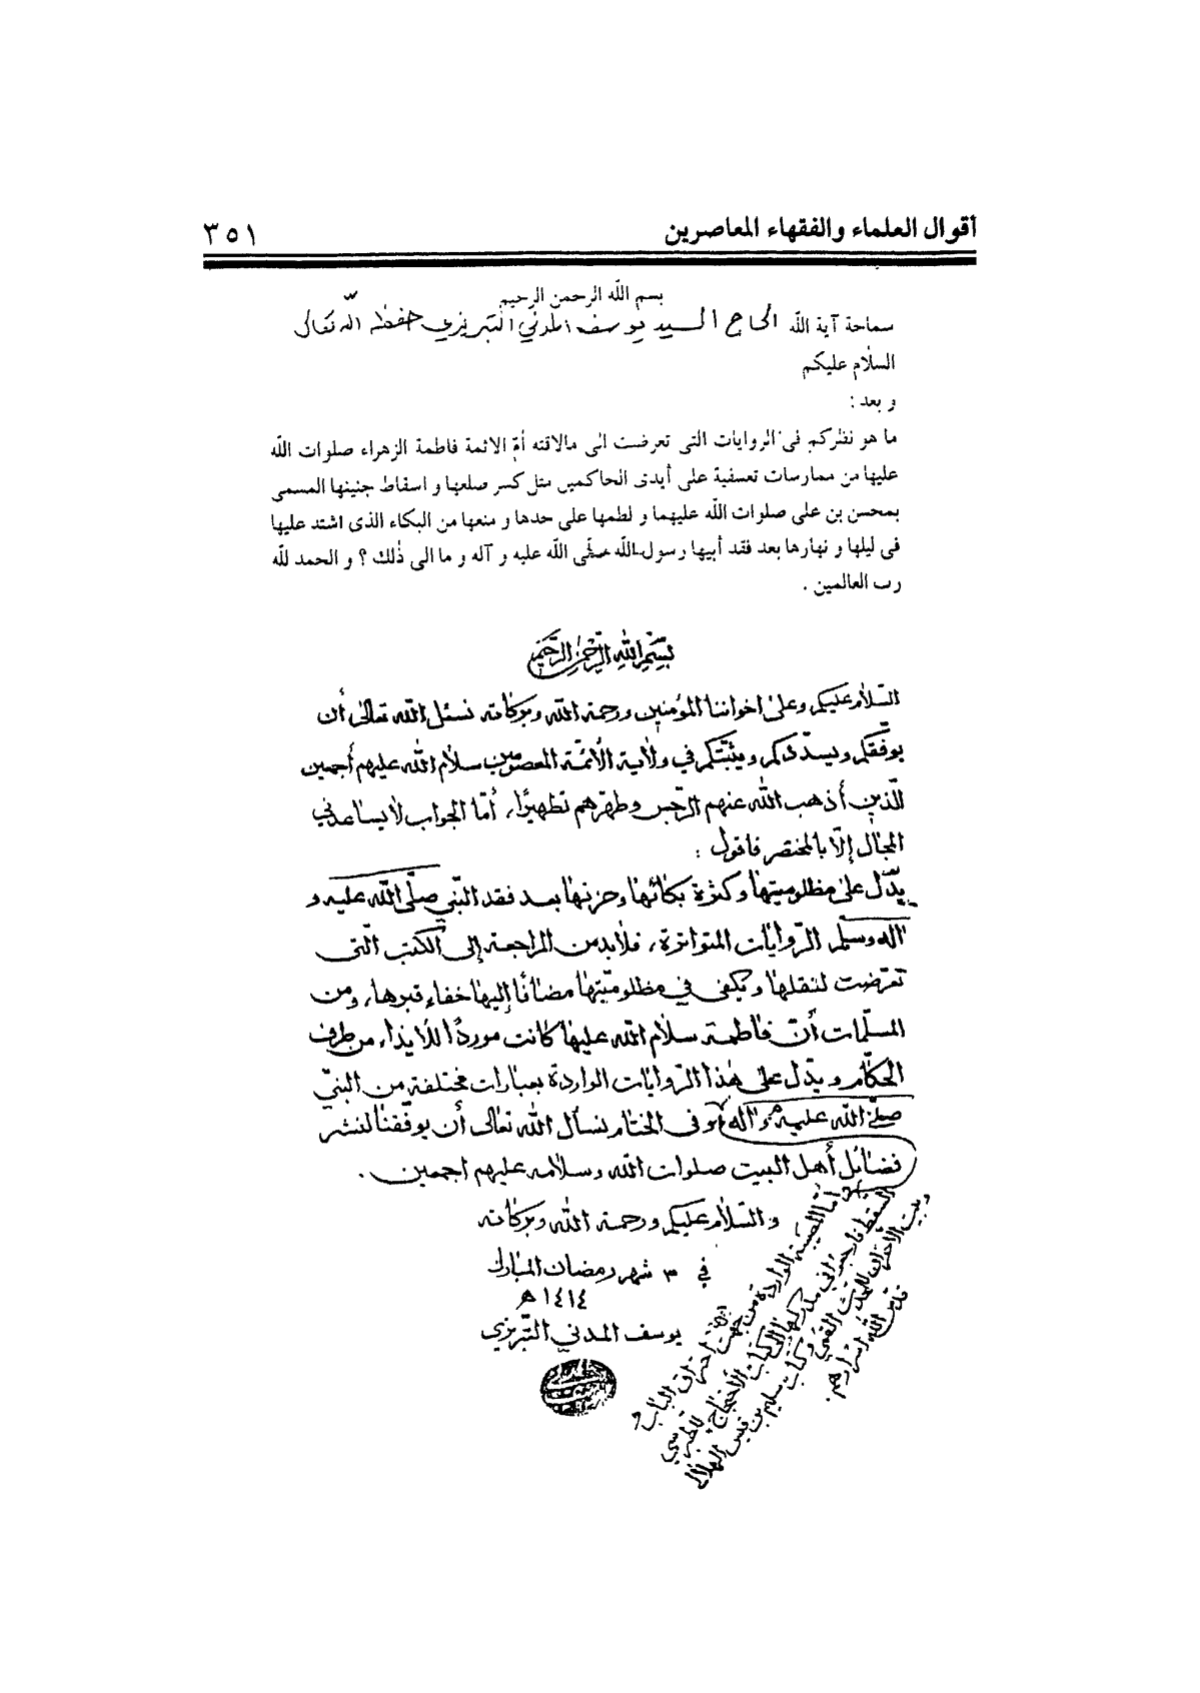 أقوال العلماء والفقهاء المعاصرين ٣٥١
بسم الله الرحمن الرحيم
سماحة آية الله الحاج السيد يوسف المدني التبريزي حفظه الله تعالى
السلام عليكم
و بعد :
ما هو نظركم فى الروايات التى تعرضت الى مالاقته أمّ الائمة فاطمة الزهراء صلوات الله
عليها من ممارسات تعسفية على أيدى الحاكمين مثل كسر ضلعها و اسقاط جنينها المسمى
بمحسن بن على صلوات الله عليهما و لطمها على خدها و منعها من البكاء الذى اشتد عليها
فى ليلها و نهارها بعد فقد أبيها رسول الله صلّى الله عليه و آله و ما الى ذٰلك ؟ و الحمد للّه
رب العالمين .
بسم الله الرحمن الرحيم
السّلام عليكم وعلى اخواننا المؤمنين ورحمة الله وبركاته نسئل الله تعالى أن
يوفّقكم ويسدّدكم ويثبّتكم في ولاية الأئمّة المعصومين سلام الله عليهم أجمعين
الّذين أذهب الله عنهم الرّجس وطهّرهم تطهيرًا، أمّا الجواب لا يساعدني
المجال إلّا بالمختصر فاقول :
يدّل على مظلوميتها وكثرة بكائها وحزنها بعد فقد النّبي صلّى الله عليه و
اله وسلّم الرّوايات المتواترة، فلابد من المراجعة إلى الكتب الّتى
تعرّضت لنقلها ويكفى في مظلوميّتها مضافًا إليها خفاء قبرها، ومن
المسلّمات أنّ فاطمة سلام الله عليها كانت موردًا للأيذاء من طرف
الحكّام ويدّل على هٰذا الرّوايات الواردة بعبارات مختلفة من النّبيّ
صلّى الله عليه واله وفى الختام نسأل الله تعالى أن يوفّقنا لنشر
فضائل أهل البيت صلوات الله وسلامه عليهم اجمعين .
والسّلام عليكم ورحمة الله وبركاته
في ٣ شهر رمضان المبارك
١٤١٤ ه
يوسف المدني التّبريزي
و أمّا المصيبة الواردة من جهت احتراق الباب و
السّقط فارجع إلى مدركها الى كتاب الأحتجاج للطبرسي
وبيت الاحزان للمحدّث القمي وكتاب سليم بن قيس الهلالي
قدّس الله اسرارهم.